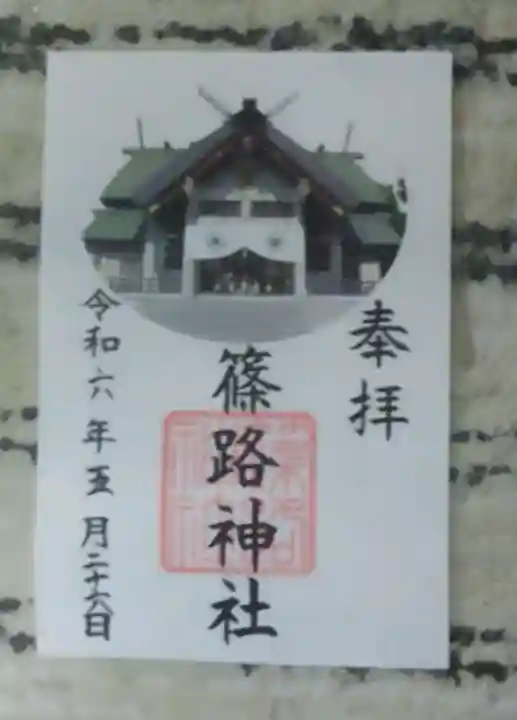 奉拝
篠路神社
令和六年五月二十六日